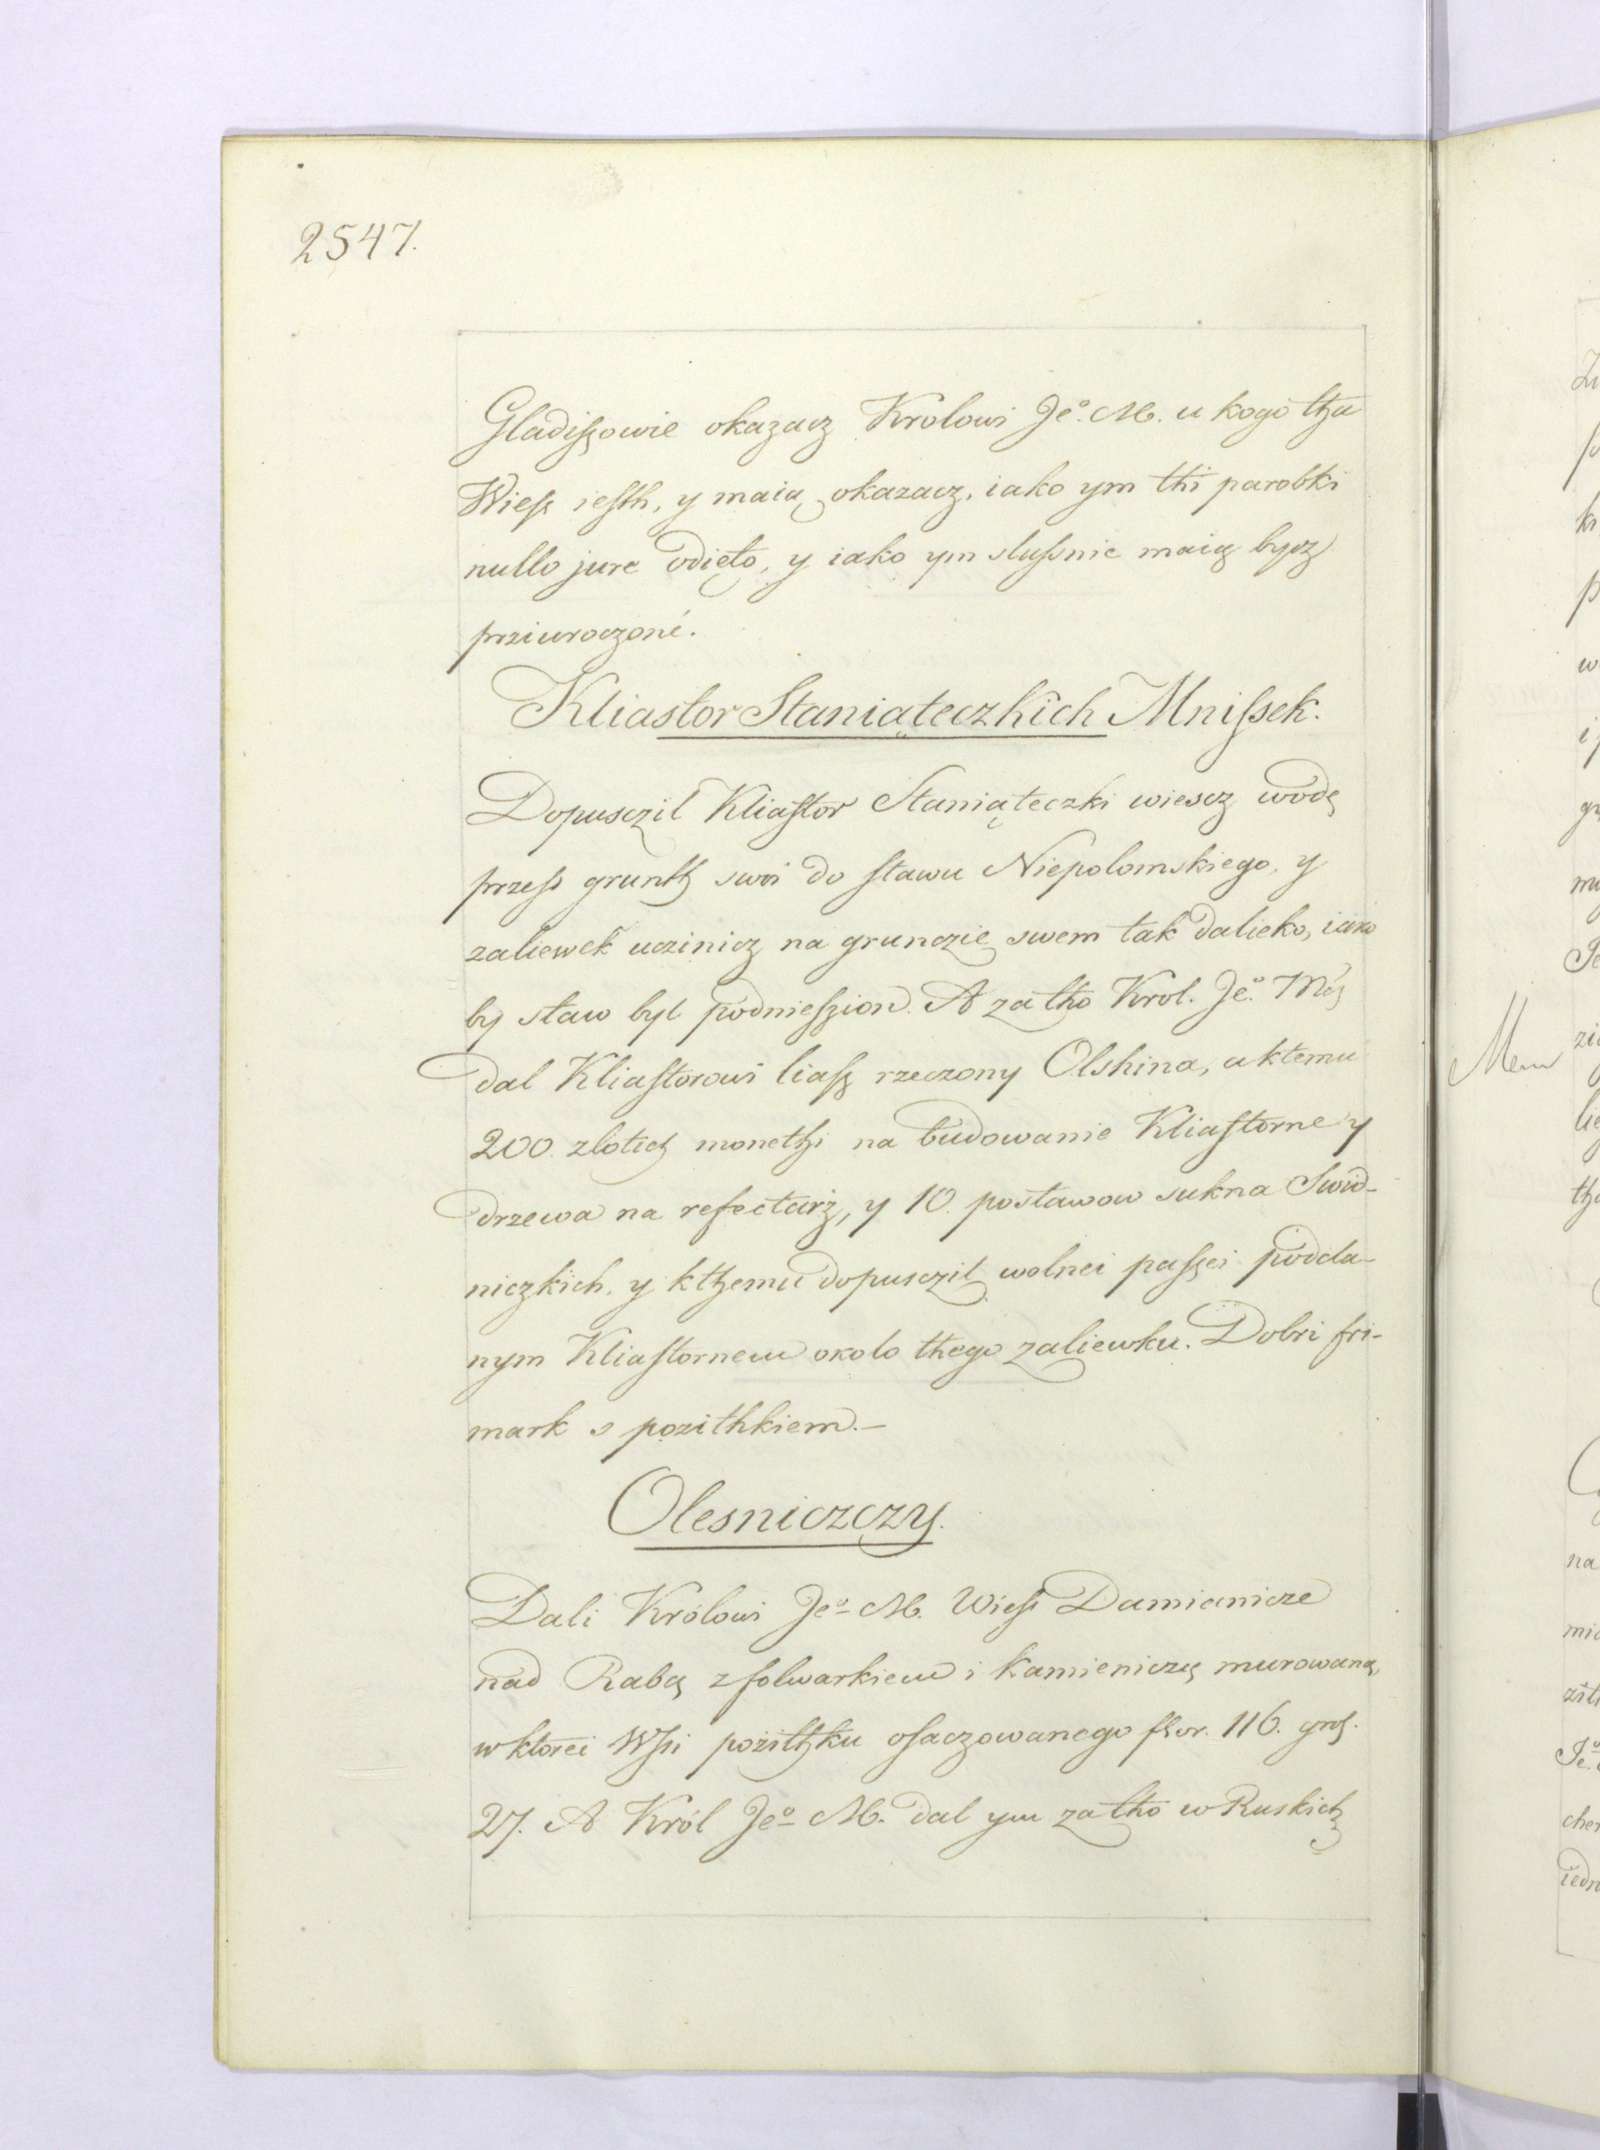 2547.
Gladiszowie okazacz Krolowi Jeº. M. u kogo tha
Wiess iesth, y maią okazacz, iako ym thi parobki
nullo jure odięto, y iako ym slussnie maią bycz
prziwroczoné.
Kliastor Staniąteczkich Mnissek.
Dopusczil Kliastor Staniąteczki wiescz wodę
przess grunth swoi do stawu Niepolomskiego, y
zaliewek uczinicz na grunczie swem tak dalieko, iako
by staw byl podnieszion. A zatho Krol. Jeº. Mć
dal Kliastorowi liass rzeczony Olshina, a ktemu
200. zlotich monethi na budowanie Kliastorne y
drzewa na refectarz, y 10. postawow sukna Swid-
niczkich, y kthemu dopusczil wolnei passei podda-
nym Kliastornem okolo thego zaliewku. Dobri fri-
mark s pozithkiem.—
Olesniczczy.
Dali Królowi Jeº M. Wiess Damianicze
nad Rabą z folwarkiem i Kamieniczą murowaną,
w ktorei Wsi pożithku osaczowanego flor. 116. gros.
27. A Król Jeº M. dal ym zatho w Ruskich
Mem